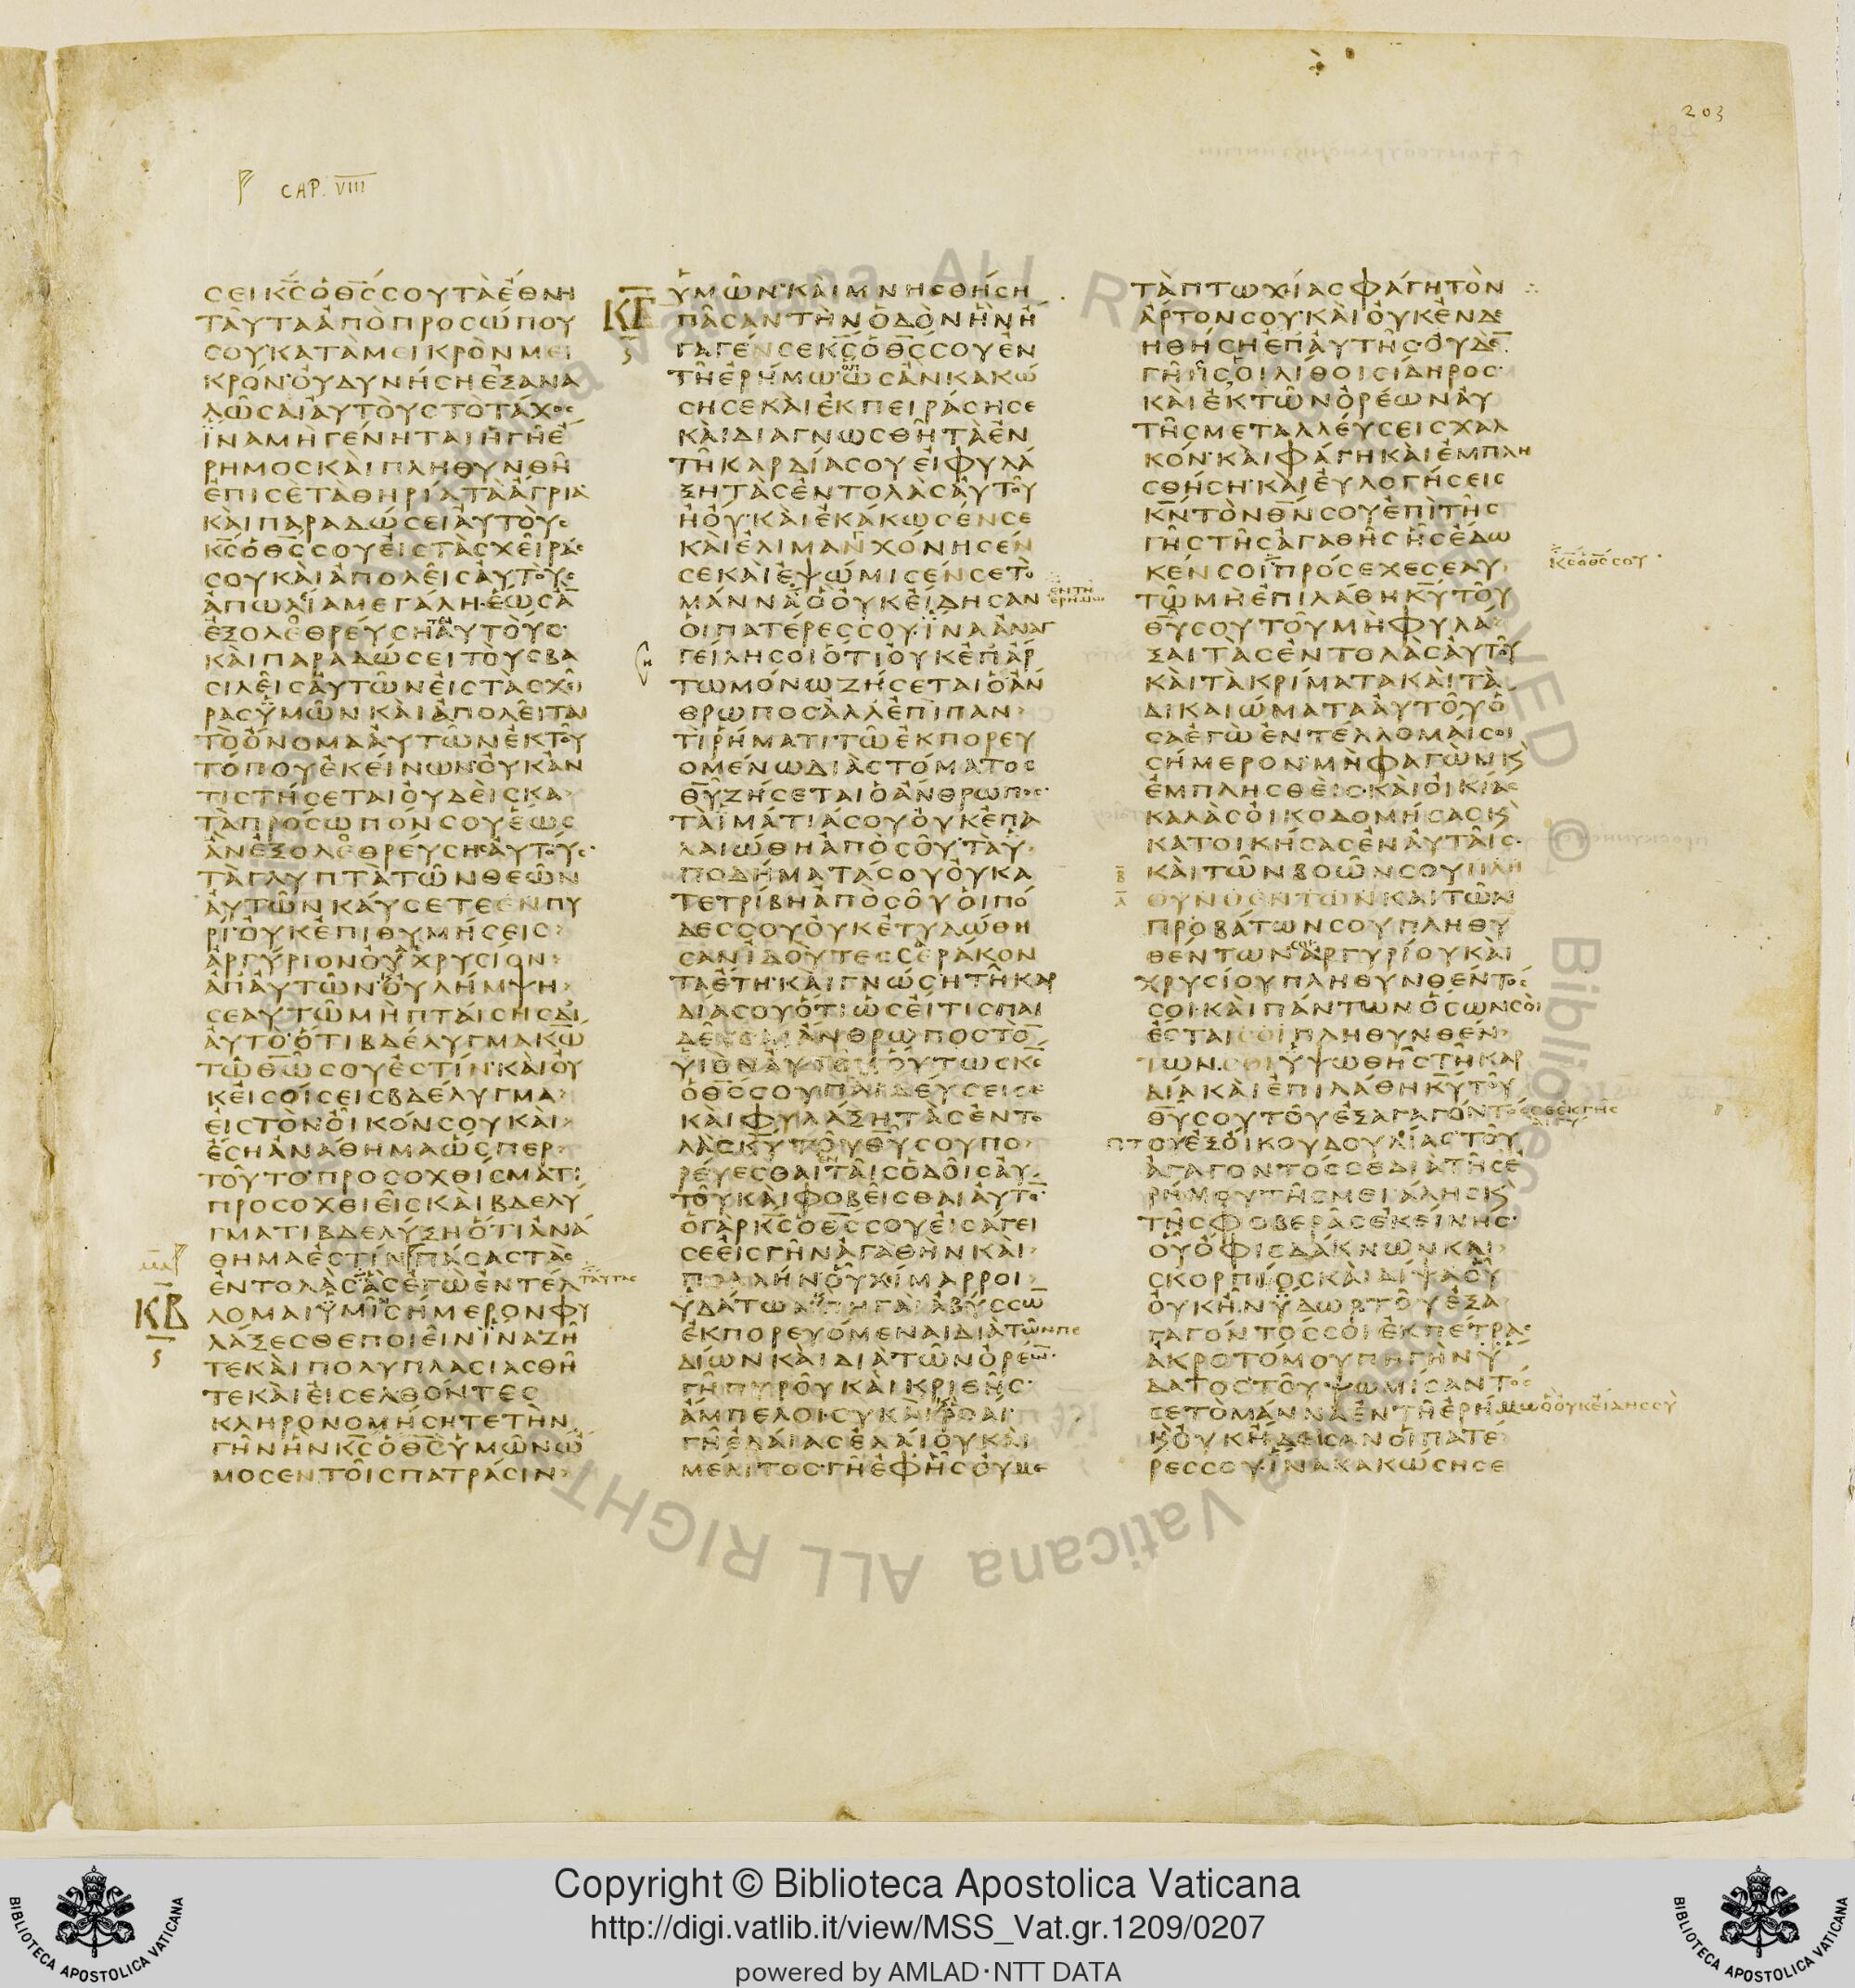 203
CAP. VIII
ϹΕΙ ΚϹ Ο ΘϹ ϹΟΥ ΤΑ ΕΘΝΗ
ΤΑΥΤΑ ΑΠΟ ΠΡΟϹΩΠΟΥ
ϹΟΥ ΚΑΤΑ ΜΕΙΚΡΟΝ ΜΕΙ
ΚΡΟΝ· ΟΥ ΔΥΝΗϹΗ ΕΞΑΝΑ
ΛΩϹΑΙ ΑΥΤΟΥϹ ΤΟ ΤΑΧΟϹ
ΪΝΑ ΜΗ ΓΕΝΗΤΑΙ Η ΓΗ Ε
ΡΗΜΟϹ ΚΑΙ ΠΛΗΘΥΝΘΗ
ΕΠΙ ϹΕ ΤΑ ΘΗΡΙΑ ΤΑ ΑΓΡΙΑ·
ΚΑΙ ΠΑΡΑΔΩϹΕΙ ΑΥΤΟΥϹ
ΚϹ Ο ΘϹ ϹΟΥ ΕΙϹ ΤΑϹ ΧΕΙΡΑϹ
ϹΟΥ ΚΑΙ ΑΠΟΛΕΙϹ ΑΥΤΟΥϹ
ΑΠΩΛΙΑ ΜΕΓΑΛΗ· ΕΩϹ ΑΝ
ΕΞΟΛΕΘΡΕΥϹΗΤΑΙ ΑΥΤΟΥϹ·
ΚΑΙ ΠΑΡΑΔΩϹΕΙ ΤΟΥϹ ΒΑ
ϹΙΛΕΙϹ ΑΥΤΩΝ ΕΙϹ ΤΑϹ ΧΕΙ
ΡΑϹ ΫΜΩΝ ΚΑΙ ΑΠΟΛΕΙΤΑΙ
ΤΟ ΟΝΟΜΑ ΑΥΤΩΝ ΕΚ ΤΟΥ
ΤΟΠΟΥ ΕΚΕΙΝΩΝ· ΟΥΚ ΑΝ
ΤΙϹΤΗϹΕΤΑΙ ΟΥΔΕΙϹ ΚΑ
ΤΑ ΠΡΟϹΩΠΟΝ ϹΟΥ ΕΩϹ
ΑΝ ΕΞΟΛΕΘΡΕΥϹΗϹ ΑΥΤΟΥϹ·
ΤΑ ΓΛΥΠΤΑ ΤΩΝ ΘΕΩΝ
ΑΥΤΩΝ ΚΑΥϹΕΤΕ ΕΝ ΠΥ
ΡΙ· ΟΥΚ ΕΠΙΘΥΜΗϹΕΙϹ
ΑΡΓΥΡΙΟΝ ΟΥΔΕ ΧΡΥϹΙΟΝ
ΑΠ ΑΥΤΩΝ· ΟΥ ΛΗΜΨΗ
ϹΕΑΥΤΩ ΜΗ ΠΤΑΙϹΗϹ ΔΙ
ΑΥΤΟ· ΟΤΙ ΒΔΕΛΥΓΜΑ ΚΩ
ΤΩ ΘΩ ϹΟΥ ΕϹΤΙΝ· ΚΑΙ ΟΥ
Κ ΕΙϹΟΙϹΕΙϹ ΒΔΕΛΥΓΜΑ
ΕΙϹ ΤΟΝ ΟΙΚΟΝ ϹΟΥ ΚΑΙ
ΕϹΗ ΑΝΑΘΗΜΑ ΩϹΠΕΡ
ΤΟΥΤΟ· ΠΡΟϹΟΧΘΙϹΜΑΤΙ
ΠΡΟϹΟΧΘΙΕΙϹ ΚΑΙ ΒΔΕΛΥ
ΓΜΑΤΙ ΒΔΕΛΥΞΗ ΟΤΙ ΑΝΑ
ΘΗΜΑ ΕϹΤΙΝ ΠΑϹΑϹ ΤΑϹ
ΕΝΤΟΛΑϹ ΑϹ ΕΓΩ ΕΝΤΕΛ ΤΑΥΤΑϹ
ΚΒ ΛΟΜΑΙ ΫΜΙΝ ϹΗΜΕΡΟΝ ΦΥ
ΛΑΞΕϹΘΕ ΠΟΙΕΙΝ ΪΝΑ ΖΗ
ΤΕ ΚΑΙ ΠΟΛΥΠΛΑϹΙΑϹΘΗ
ΤΕ ΚΑΙ ΕΙϹΕΛΘΟΝΤΕϹ
ΚΛΗΡΟΝΟΜΗϹΗΤΕ ΤΗΝ
ΓΗΝ ΗΝ ΚϹ Ο ΘϹ ΥΜΩΝ Ω
ΜΟϹΕΝ ΤΟΙϹ ΠΑΤΡΑϹΙΝ
ΥΜΩΝ· ΚΑΙ ΜΝΗϹΘΗϹΗ
ΚΓ ΠΑϹΑΝ ΤΗΝ ΟΔΟΝ ΗΝ Η
ΓΑΓΕΝ ϹΕ ΚϹ Ο ΘϹ ϹΟΥ ΕΝ
ΤΗ ΕΡΗΜΩ· ΟΠΩϹ ΑΝ ΚΑΚΩ
ϹΗ ϹΕ ΚΑΙ ΕΚΠΕΙΡΑϹΗ ϹΕ
ΚΑΙ ΔΙΑΓΝΩϹΘΗ ΤΑ ΕΝ
ΤΗ ΚΑΡΔΙΑ ϹΟΥ ΕΙ ΦΥΛΑ
ΞΗ ΤΑϹ ΕΝΤΟΛΑϹ ΑΥΤΟΥ
Η ΟΥ· ΚΑΙ ΕΚΑΚΩϹΕΝ ϹΕ
ΚΑΙ ΕΛΙΜΑΓΧΟΝΗϹΕΝ
ϹΕ ΚΑΙ ΕΨΩΜΙϹΕΝ ϹΕ ΤΟ
ΜΑΝΝΑ Ο ΟΥΚ ΕΙΔΗϹΑΝ ΕΝ ΤΗ ΕΡΗΜΩ
ΟΙ ΠΑΤΕΡΕϹ ϹΟΥ· ΪΝΑ ΑΝΑΓ
ΓΕΙΛΗ ϹΟΙ ΟΤΙ ΟΥΚ ΕΠ ΑΡ
ΤΩ ΜΟΝΩ ΖΗϹΕΤΑΙ Ο ΑΝ
ΘΡΩΠΟϹ ΑΛΛ ΕΠΙ ΠΑΝ
ΤΙ ΡΗΜΑΤΙ ΤΩ ΕΚΠΟΡΕΥ
ΟΜΕΝΩ ΔΙΑ ϹΤΟΜΑΤΟϹ
ΘΥ ΖΗϹΕΤΑΙ Ο ΑΝΘΡΩΠΟϹ·
ΤΑ ΪΜΑΤΙΑ ϹΟΥ ΟΥΚ ΕΠΑ
ΛΑΙΩΘΗ ΑΠΟ ϹΟΥ ΤΑ Υ
ΠΟΔΗΜΑΤΑ ϹΟΥ ΟΥ ΚΑ
ΤΕΤΡΙΒΗ ΑΠΟ ϹΟΥ ΟΙ ΠΟ
ΔΕϹ ϹΟΥ ΟΥΚ ΕΤΥΛΩΘΗ
ϹΑΝ ΙΔΟΥ ΤΕϹϹΕΡΑΚΟΝ
ΤΑ ΕΤΗ· ΚΑΙ ΓΝΩϹΗ ΤΗ ΚΑΡ
ΔΙΑ ϹΟΥ ΟΤΙ ΩϹ ΕΙ ΤΙϹ ΠΑΙ
ΔΕΥϹΑΙ ΑΝΘΡΩΠΟϹ ΤΟΝ
ΥΙΟΝ ΑΥΤΟΥ ΟΥΤΩϹ ΚϹ
Ο ΘϹ ϹΟΥ ΠΑΙΔΕΥϹΕΙ ϹΕ
ΚΑΙ ΦΥΛΑΞΗ ΤΑϹ ΕΝΤΟ
ΛΑϹ ΚΥ ΤΟΥ ΘΥ ϹΟΥ ΠΟ
ΡΕΥΕϹΘΑΙ ΕΝ ΤΑΙϹ ΟΔΟΙϹ ΑΥ
ΤΟΥ ΚΑΙ ΦΟΒΕΙϹΘΑΙ ΑΥΤΟΝ·
Ο ΓΑΡ ΚϹ Ο ΘϹ ϹΟΥ ΕΙϹΑΓΕΙ
ϹΕ ΕΙϹ ΓΗΝ ΑΓΑΘΗΝ ΚΑΙ
ΠΟΛΛΗΝ· ΟΥ ΧΙΜΑΡΡΟΙ
ΫΔΑΤΩΝ ΠΗΓΑΙ ΑΒΥϹϹΩΝ
ΕΚΠΟΡΕΥΟΜΕΝΑΙ ΔΙΑ ΤΩΝ ΠΕ
ΔΙΩΝ ΚΑΙ ΔΙΑ ΤΩΝ ΟΡΕΩΝ·
ΓΗ ΠΥΡΟΥ ΚΑΙ ΚΡΙΘΗϹ·
ΑΜΠΕΛΟΙ· ϹΥΚΑΙ ΡΟΑΙ·
ΓΗ ΕΛΑΙΑϹ ΕΛΑΙΟΥ ΚΑΙ
ΜΕΛΙΤΟϹ· ΓΗ ΕΦ ΗϹ ΟΥ ΜΕ
ΤΑ ΠΤΩΧΙΑϹ ΦΑΓΗ ΤΟΝ
ΑΡΤΟΝ ϹΟΥ· ΚΑΙ ΟΥΚ ΕΝΔΕ
ΗΘΗϹΗ ΕΠ ΑΥΤΗϹ· ΟΥΔΕΝ
ΓΗ ΗϹ ΟΙ ΛΙΘΟΙ ϹΙΔΗΡΟϹ·
ΚΑΙ ΕΚ ΤΩΝ ΟΡΕΩΝ ΑΥ
ΤΗϹ ΜΕΤΑΛΛΕΥϹΕΙϹ ΧΑΛ
ΚΟΝ· ΚΑΙ ΦΑΓΗ ΚΑΙ ΕΜΠΛΗ
ϹΘΗϹΗ· ΚΑΙ ΕΥΛΟΓΗϹΕΙϹ
ΚΝ ΤΟΝ ΘΝ ϹΟΥ ΕΠΙ ΤΗϹ
ΓΗϹ ΤΗϹ ΑΓΑΘΗϹ ΗϹ ΕΔΩ
ΚΕΝ ϹΟΙ ΠΡΟϹΕΧΕ ϹΕΑΥ ΚϹ Ο ΘϹ ϹΟΥ
ΤΩ ΜΗ ΕΠΙΛΑΘΗ ΚΥ ΤΟΥ
ΘΥ ϹΟΥ ΤΟΥ ΜΗ ΦΥΛΑ
ΞΑΙ ΤΑϹ ΕΝΤΟΛΑϹ ΑΥΤΟΥ
ΚΑΙ ΤΑ ΚΡΙΜΑΤΑ ΚΑΙ ΤΑ
ΔΙΚΑΙΩΜΑΤΑ ΑΥΤΟΥ Ο
ϹΑ ΕΓΩ ΕΝΤΕΛΛΟΜΑΙ ϹΟΙ
ϹΗΜΕΡΟΝ· ΜΗ ΦΑΓΩΝ Κ
ΕΜΠΛΗϹΘΕΙϹ· ΚΑΙ ΟΙΚΙΑϹ
ΚΑΛΑϹ ΟΙΚΟΔΟΜΗϹΑϹ Κ
ΚΑΤΟΙΚΗϹΑϹ ΕΝ ΑΥΤΑΙϹ·
ΚΑΙ ΤΩΝ ΒΟΩΝ ϹΟΥ ΠΛΗ
ΘΥΝΘΕΝΤΩΝ ΚΑΙ ΤΩΝ
ΠΡΟΒΑΤΩΝ ϹΟΥ ΠΛΗΘΥ
ΘΕΝΤΩΝ ϹΟΙ ΑΡΓΥΡΙΟΥ ΚΑΙ
ΧΡΥϹΙΟΥ ΠΛΗΘΥΝΘΕΝΤΟϹ
ϹΟΙ· ΚΑΙ ΠΑΝΤΩΝ ΟϹΩΝ ϹΟΙ
ΕϹΤΑΙ ϹΟΙ ΠΛΗΘΥΝΘΕΝ
ΤΩΝ. ϹΟΙ ΥΨΩΘΗϹ ΤΗ ΚΑΡ
ΔΙΑ ΚΑΙ ΕΠΙΛΑΘΗ ΚΥ ΤΟΥ
ΘΥ ϹΟΥ ΤΟΥ ΕΞΑΓΑΓΟΝΤΟϹ ϹΕ ΕΚ ΓΗϹ
ΑΙΓΥ
ΠΤΟΥ ΕΞ ΟΙΚΟΥ ΔΟΥΛΙΑϹ ΤΟΥ
ΑΓΑΓΟΝΤΟϹ ϹΕ ΔΙΑ ΤΗϹ Ε
ΡΗΜΟΥ ΤΗϹ ΜΕΓΑΛΗϹ Κ
ΤΗϹ ΦΟΒΕΡΑϹ ΕΚΕΙΝΗϹ·
ΟΥ ΟΦΙϹ ΔΑΚΝΩΝ ΚΑΙ
ϹΚΟΡΠΙΟϹ ΚΑΙ ΔΙΨΑ ΟΥ
ΟΥΚ ΗΝ ΫΔΩΡ ΤΟΥ ΕΞΑ
ΓΑΓΟΝΤΟϹ ϹΟΙ ΕΚ ΠΕΤΡΑϹ
ΑΚΡΟΤΟΜΟΥ ΠΗΓΗΝ Ϋ
ΔΑΤΟϹ· ΤΟΥ ΨΩΜΙϹΑΝΤΟϹ
ϹΕ ΤΟ ΜΑΝΝΑ ΕΝ ΤΗ ΕΡΗΜΩ Ο ΟΥΚ ΕΙΔΗϹ ϹΥ
Κ ΟΥΚ ΗΔΕΙϹΑΝ ΟΙ ΠΑΤΕ
ΡΕϹ ϹΟΥ· ΙΝΑ ΚΑΚΩϹΗ ϹΕ
Copyright © Biblioteca Apostolica Vaticana
http://digi.vatlib.it/view/MSS_Vat.gr.1209/0207
powered by AMLAD·NTT DATA
BIBLIOTECA APOSTOLICA VATICANA
BIBLIOTECA APOSTOLICA VATICANA